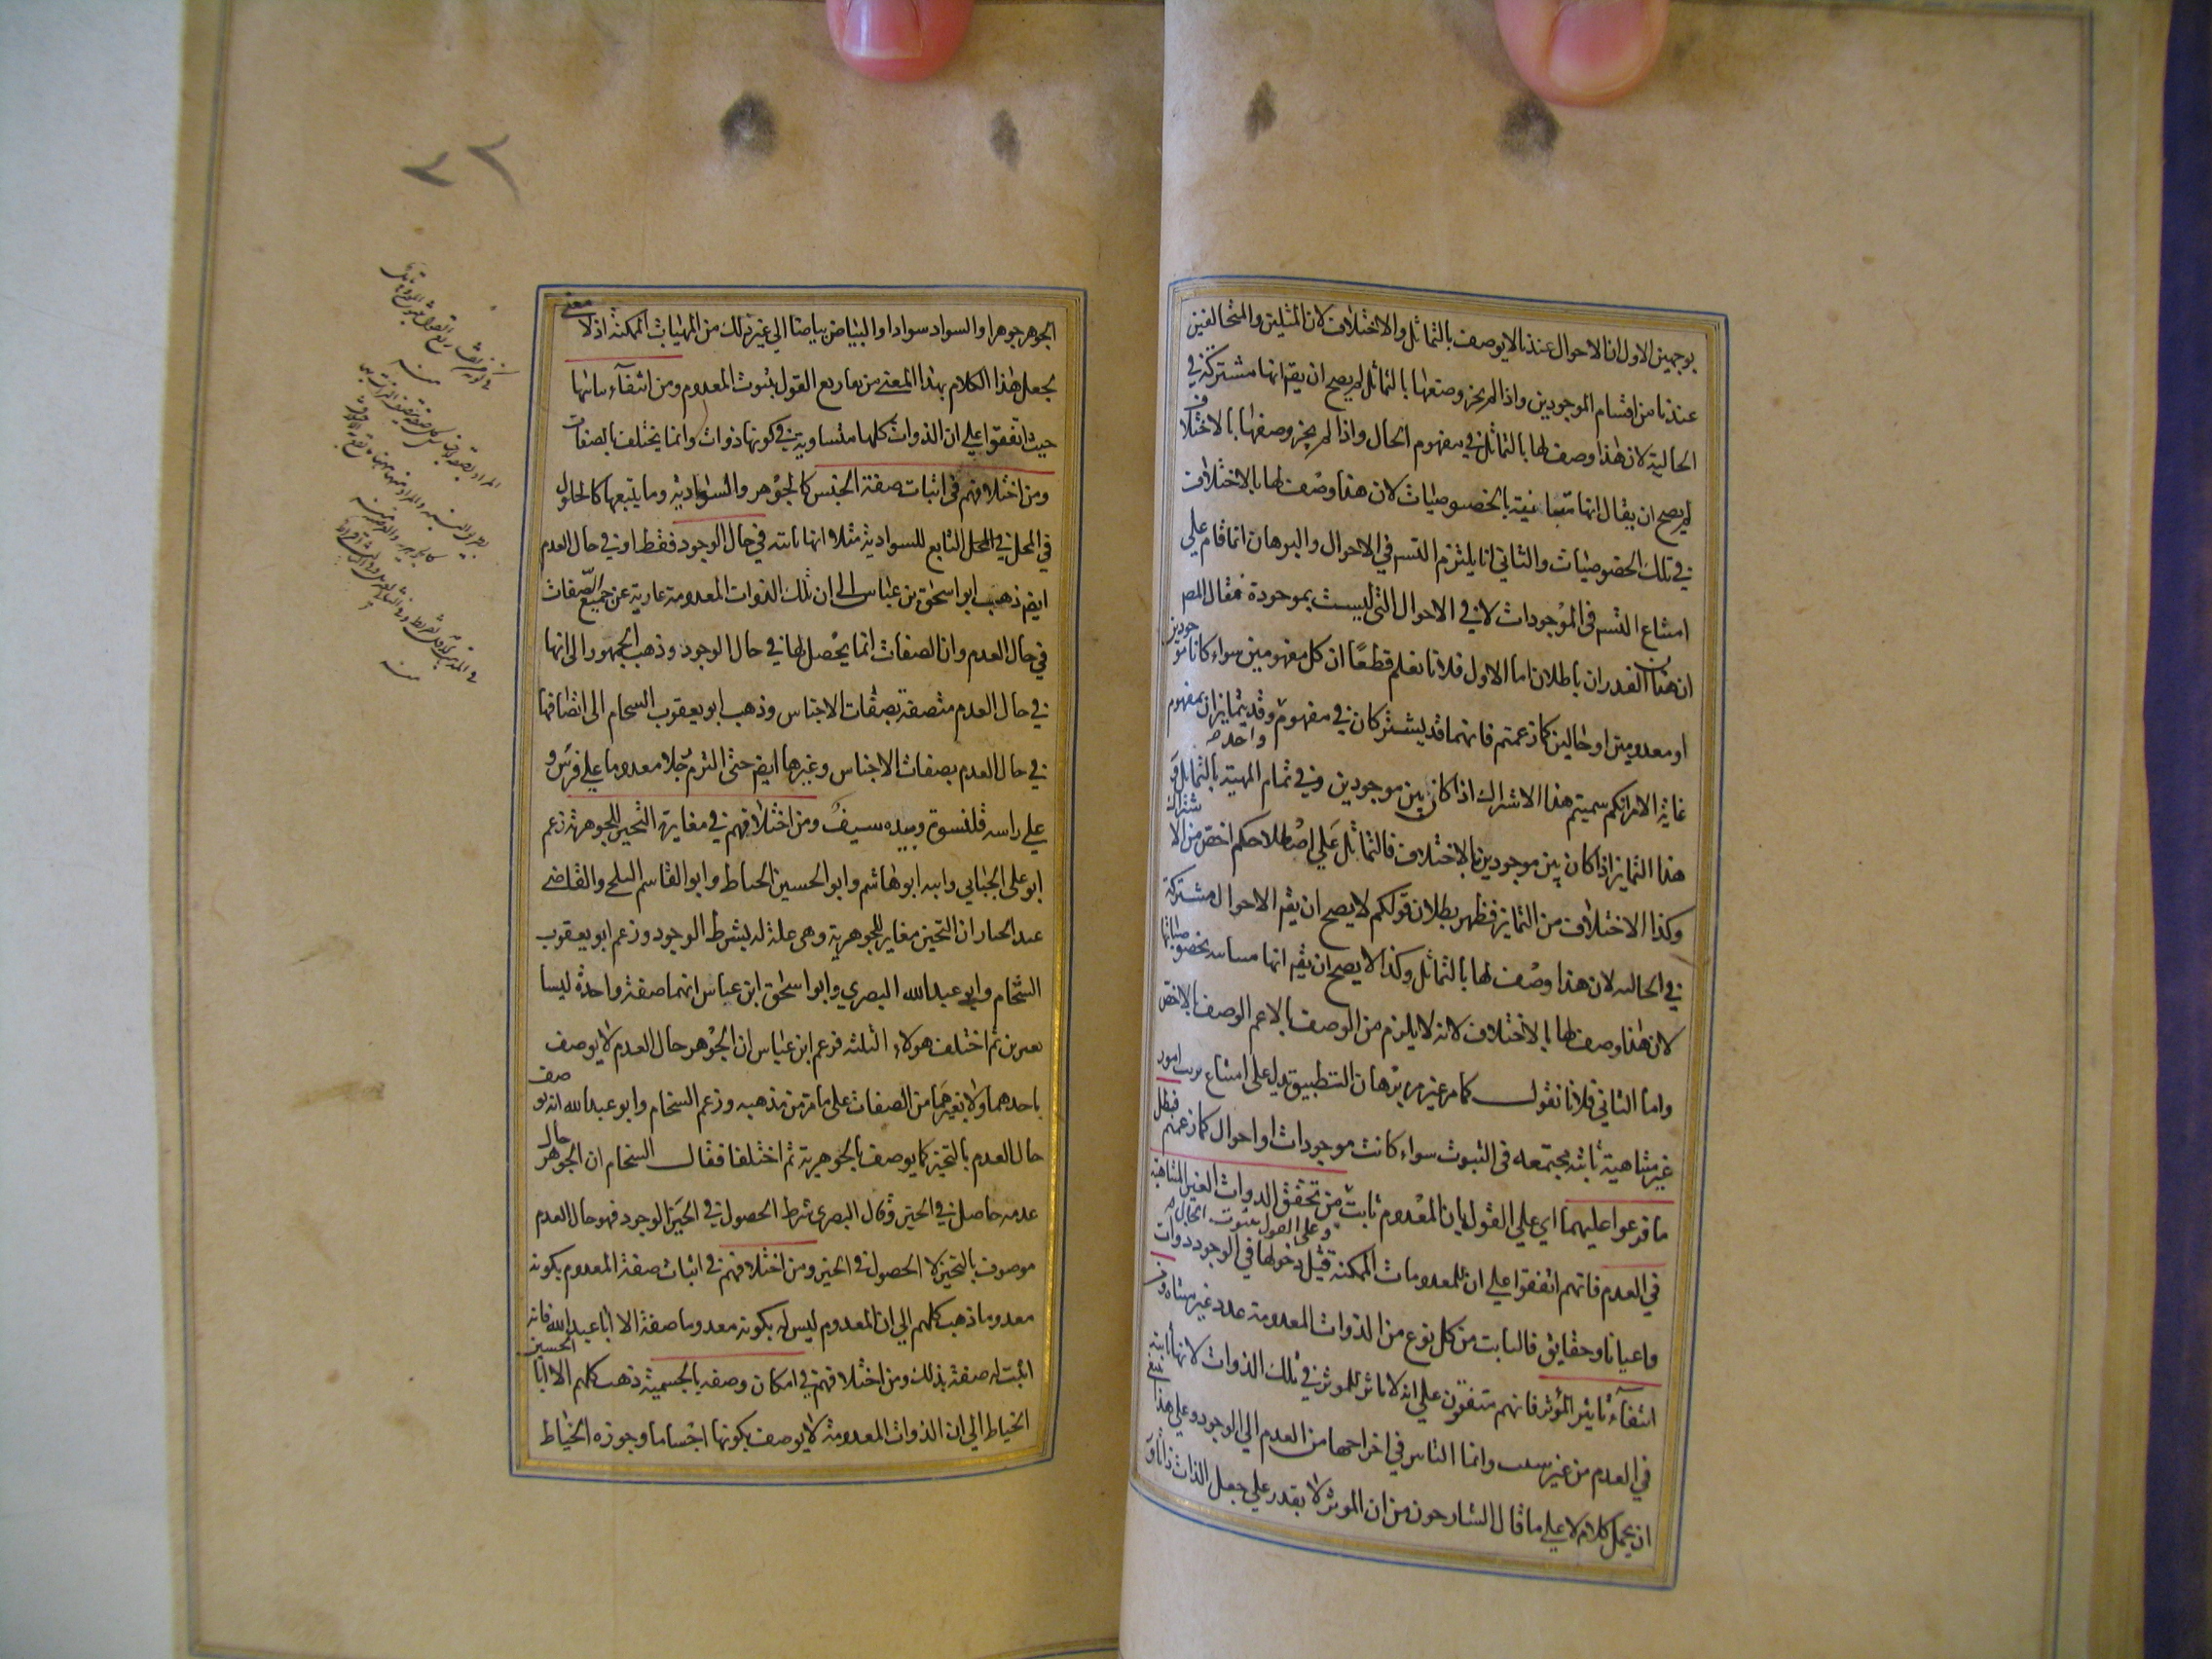 بوجهين الاول ان الاحوال عندنا لا يوصف بالتماثل والاختلاف لان المثلين والمتخالفين
عندنا من اقسام الموجودين واذا لم يجز وصفها بالتماثل لم يصح ان يقم انها مشتركة في
الحالية لان هذا وصف لها بالتماثل في مفهوم الحال واذا لم يجز وصفها بالاختلاف
لم يصح ان يقال انها بالخصوصيات لان هذا وصف لها بالاختلاف
في تلك الخصوصيات والثاني انا يلتزم التسم في الاحوال والبرهان انما قام على
امتناع التسم في الموجودات لا في الاحوال التي ليست بموجودة فقال المص
ان هذان العذران باطلان اما الاول فلانا نعلم قطعا ان كل مفهومين سواء كانا موجودين
او معدومين او حالين كما زعمتم فانهما قد يشتركان في مفهوم واحد وقد يتمايزان بمفهوم
غاية الامر انكم سميتم هذا الاشتراك اذا كان بين موجودين وفي تمام المهية بالتماثل و
هذا التمايز اذا كان بين موجودين بالاختلاف فالتماثل على اصطلاحكم اخص من الاشتراك
وكذا الاختلاف من التمايز فظهر بطلان قولكم لا يصح ان يقم الاحوال مشتركة
في الحالية لان هذا وصف لها بالتماثل وكذا لا يصح ان يقم انها بخصوصياتها
لان هذا وصف لها بالاختلاف لانه لا يلزم من الوصف بالاعم الوصف بالاخص
واما الثاني فلانا نقول كما مر غير مرة برهان التطبيق يدل على امتناع امور
غير متناهية ثابتة مجتمعة في الثبوت سواء كانت موجودات او احوال كما زعمتم فبطل
ما فرعوا عليهما اي على القول بان المعدوم ثابت وعلى القول بثبوت الحال من تحقق الذوات الغير المتناهية
في العدم فانهم اتفقوا على ان للمعدومات الممكنة قبل دخولها في الوجود ذوات
واعيانا وحقايق فالثابت من كل نوع من الذوات المعدومة عدد غير متناه و
انتفاء تاثير المؤثر فانهم متفقون على انه لا تاثير للموثر في تلك الذوات لانها ثابتة
في العدم من غير سبب وانما التاثير في اخراجها من العدم الى الوجود وعلى هذا
ان يحمل كلامه لا على ما قال الشارحون من ان الموثر لا يقدر على جعل الذات ذاتا و
٧٢
الجوهر جوهرا والسواد سوادا والبياض بياضا الى غير ذلك من المهيات الممكنة اذ لا معنى
لجعل هذا الكلام بهذا المعنى من تفاريع القول بثبوت المعدوم ومن انتفاء تباينها
حيث اتفقوا على ان الذوات كلها متساوية في كونها ذوات وانما يختلف بالصفات
ومن اختلافهم في اثبات صفة الجنس كالجوهر والسوادية وما يتبعها كالحلول
في المحل التابع للسوادية مثلا انها ثابتة في حال الوجود فقط او في حال العدم
ايضم ذهب ابو اسحق بن عياش الى ان تلك الذوات المعدومة عارية عن جميع الصفات
في حال العدم وان الصفات انما يحصل لها في حال الوجود وذهب الجمهور الى انها
في حال العدم متصفة بصفات الاجناس وذهب ابو يعقوب السحام الى اتصافها
في حال العدم بصفات الاجناس وغيرها ايضم حتى التزم رجلا معدوما على فرس و
على راسه قلنسوة وبيده سيف ومن اختلافهم في مغايرة التحيز للجوهرية زعم
ابو على الجبايي وابنه ابو هاشم وابو الحسين الخياط وابو القاسم البلخي والقاضي
عبد الجبار ان التحيز مغاير للجوهرية وهي علة له بشرط الوجود وزعم ابو يعقوب
الشحام وابو عبد الله البصري وابو اسحق ابن عياش انهما صفة واحدة ليسا
ثم اختلف هولاء الثلثة فزعم ابن عياش ان الجوهر حال العدم لا يوصف
باحدهما ولا بغيرهما من الصفات على ما مر من مذهبه وزعم السحام وابو عبد الله انه يوصف
حال العدم بالتحيز كما يوصف بالجوهرية ثم اختلفا فقال السحام ان الجوهر حال
عدمه حاصل في الحيز وقال البصري شرط الحصول في الحيز الوجود فهو حال العدم
موصوف بالتحيز لا الحصول في الحيز ومن اختلافهم في اثبات صفة المعدوم بكونه
معدوما ذهب كلهم الى ان المعدوم ليس له بكونه معدوما صفة الا ابا عبد الله فانه
اثبت له صفة بذلك ومن اختلافهم في امكان وصفه بالجسمية ذهب كلهم الا ابا الحسين
الخياط الى ان الذوات المعدومة لا يوصف بكونها اجساما وجوزه الخياط